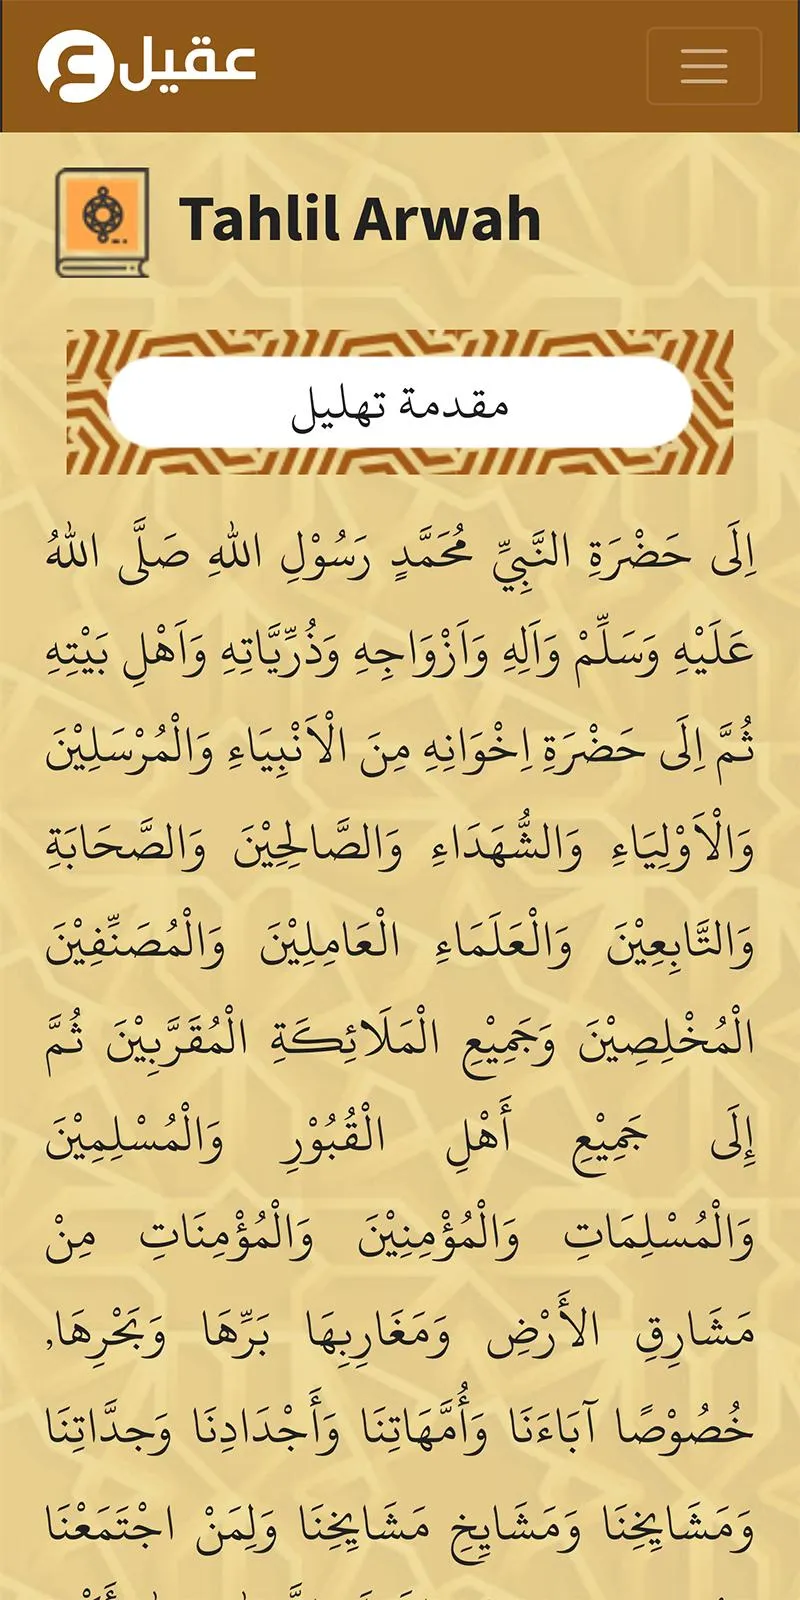 عقيل
Tahlil Arwah
مقدمة تهليل
اِلَى حَضْرَةِ النَّبِيِّ مُحَمَّدٍ رَسُوْلِ اللهِ صَلَّى اللهُ
عَلَيْهِ وَسَلِّمْ وَاَلِهِ وَاَزْوَاجِهِ وَذُرِّيَّاتِهِ وَاَهْلِ بَيْتِهِ
ثُمَّ اِلَى حَضْرَةِ اِخْوَانِهِ مِنَ الْاَنْبِيَاءِ وَالْمُرْسَلِيْنَ
وَالْاَوْلِيَاءِ وَالشُّهَدَاءِ وَالصَّالِحِيْنَ وَالصَّحَابَةِ
وَالتَّابِعِيْنَ وَالْعَلَمَاءِ الْعَامِلِيْنَ وَالْمُصَنِّفِيْنَ
الْمُخْلِصِيْنَ وَجَمِيْعِ الْمَلَائِكَةِ الْمُقَرَّبِيْنَ ثُمَّ
إِلَى جَمِيْعِ أَهْلِ الْقُبُوْرِ وَالْمُسْلِمِيْنَ
وَالْمُسْلِمَاتِ وَالْمُؤْمِنِيْنَ وَالْمُؤْمِنَاتِ مِنْ
مَشَارِقِ الأَرْضِ وَمَغَارِبِهَا بَرِّهَا وَبَحْرِهَا,
خُصُوْصًا آبَاءَنَا وَأُمَّهَاتِنَا وَأَجْدَادِنَا وَجدَّاتِنَا
وَمَشَايِخِنَا وَمَشَايِخِ مَشَايِخِنَا وَلِمَنْ اجْتَمَعْنَا